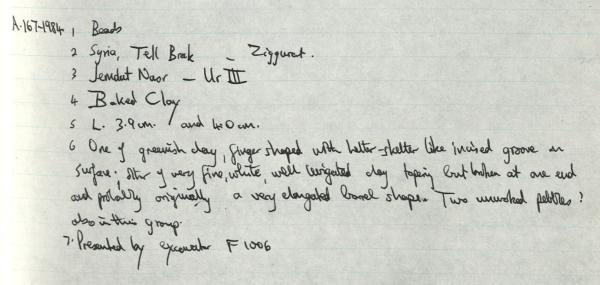 A.167-1984 1 Beads
2 Syria, Tell Brak - Ziggurat.
3 Jemdat Nasr - Ur III
4 Baked Clay
5 L. 3.9cm. and 4.0cm.
6 One of greenish clay, finger shaped with helter-skelter like incised groove on
surface; other of very fine, white, well levigated clay taping but broken at one end
and probably originally a very elongated barrel shape. Two unworked pebbles?
also in this group.
7. Presented by excavator F 1006